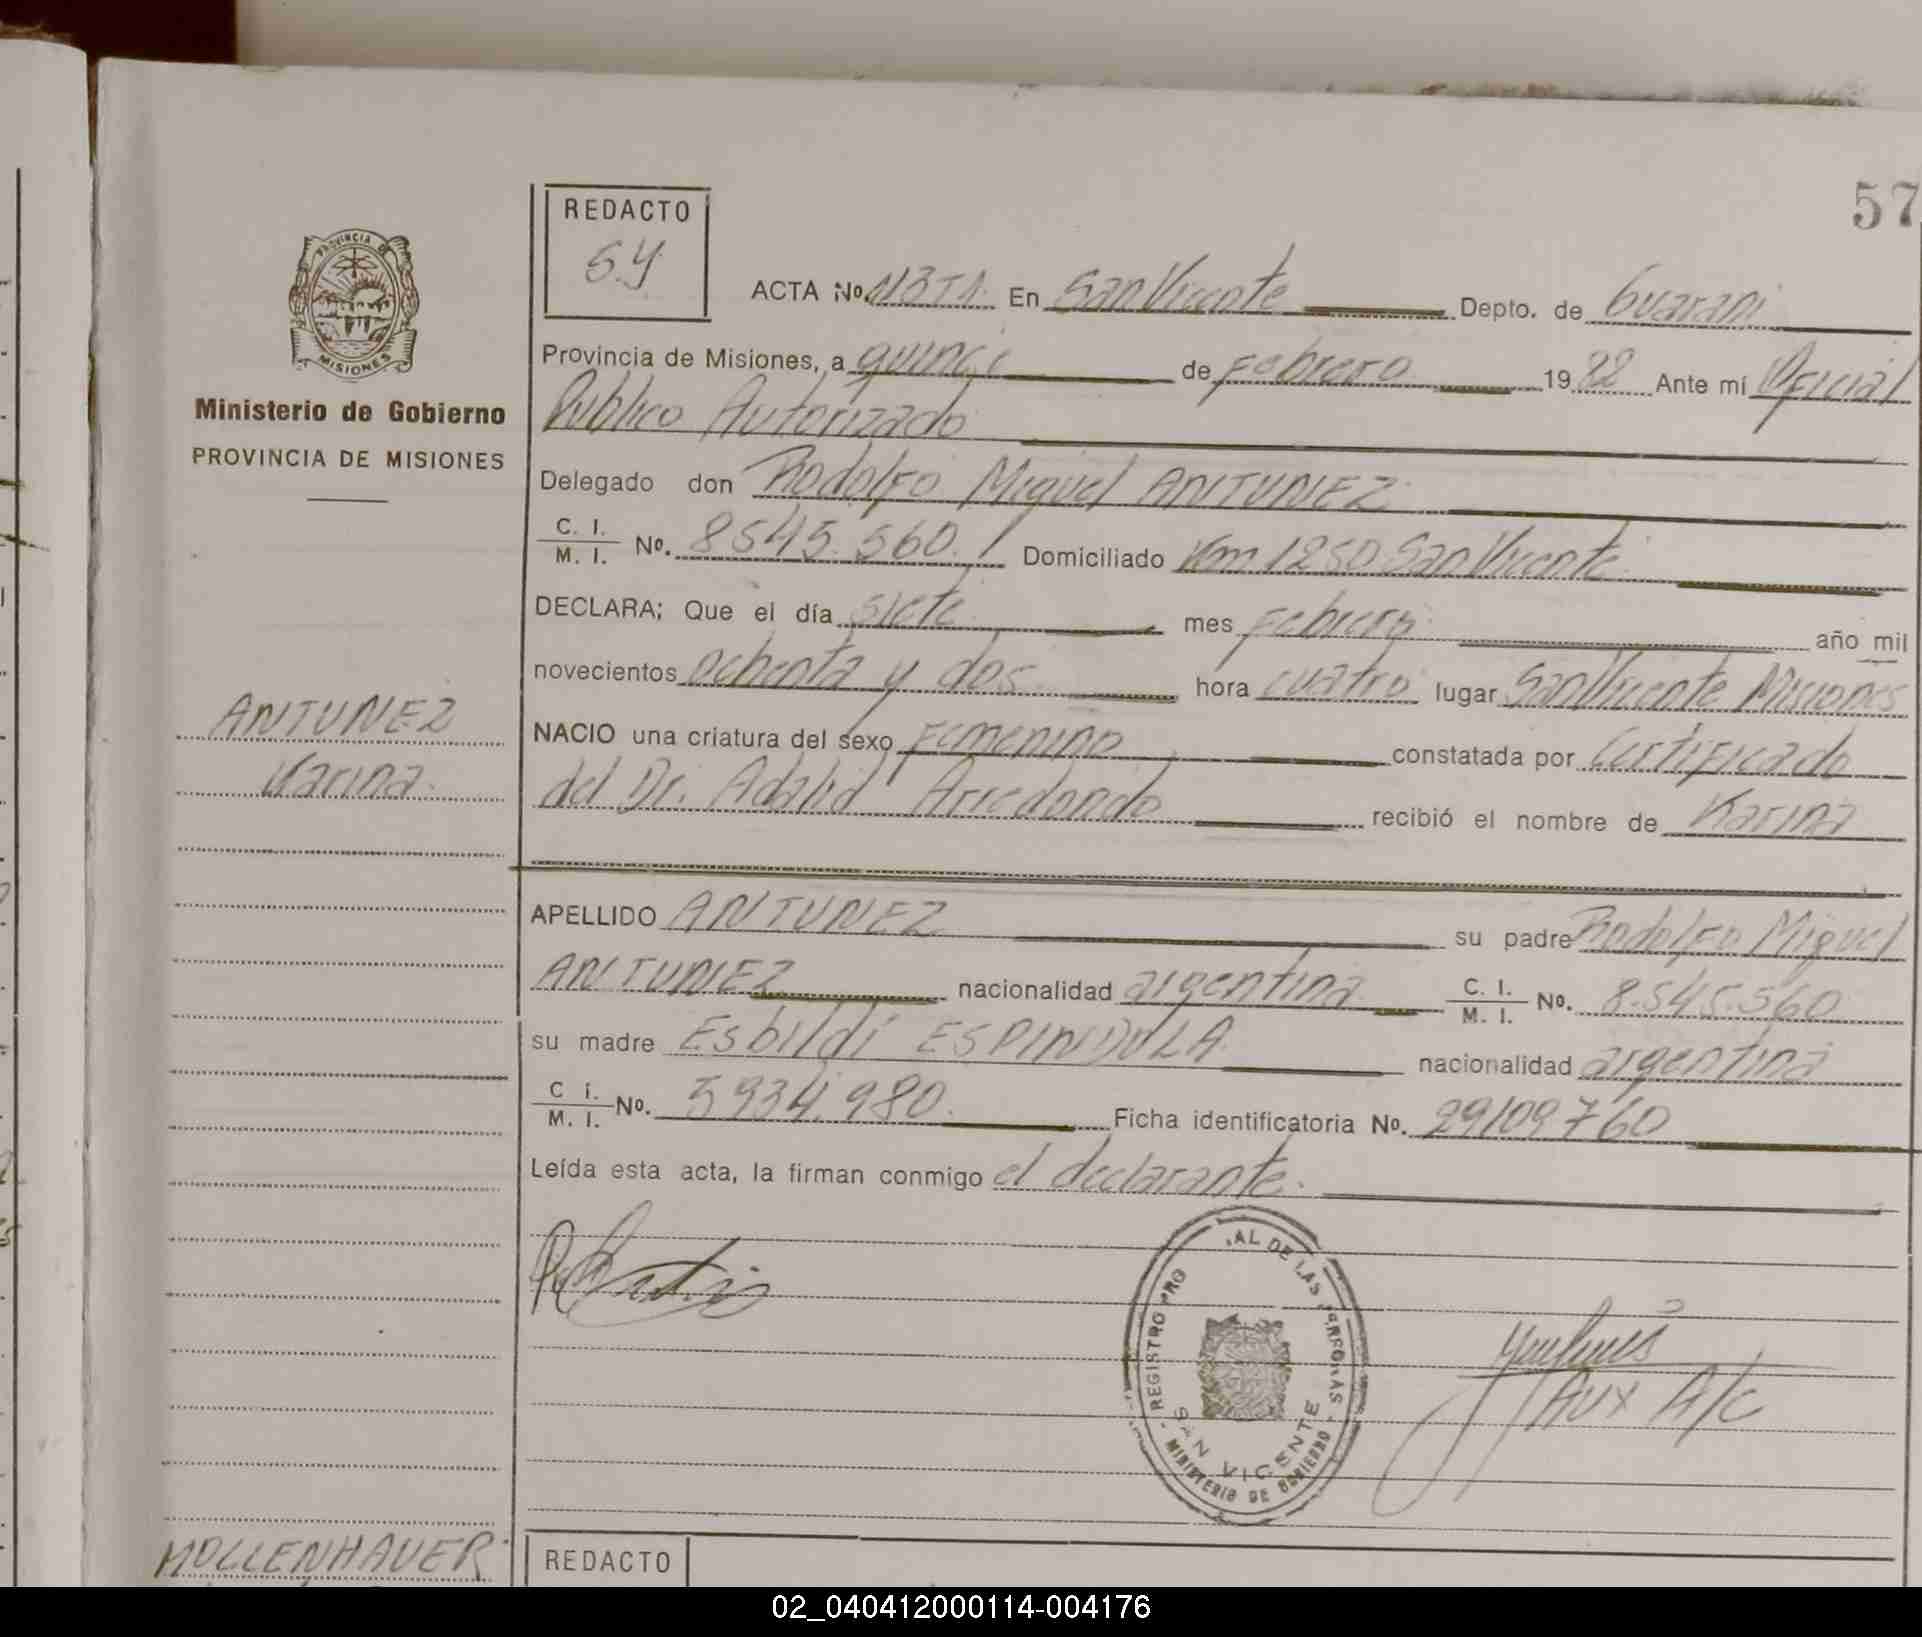 57
REDACTO
S.Y
PROVINCIA DE
MISIONES
Ministerio de Gobierno
PROVINCIA DE MISIONES
ACTA Nº En San Vicente Depto. de Guarani
Provincia de Misiones, a quince de Febrero 1982 Ante mí Oficial
Publico Autorizado
Delegado don Rodolfo Miguel ANTUNEZ
C. I. / M. I. Nº. 8545.560. Domiciliado Km 1250 San Vicente
DECLARA; Que el día siete mes Febrero año mil
novecientos ochenta y dos hora cuatro lugar San Vicente Misiones
ANTUNEZ
Karina.
NACIO una criatura del sexo Femenino constatada por Certificado
del Dr. Adalid Arredondo recibió el nombre de Karina
APELLIDO ANTUNEZ su padre Rodolfo Miguel
ANTUNEZ nacionalidad argentina C. I. / M. I. Nº. 8.545.560
su madre Esbildi ESPINDULA nacionalidad argentina
C i. / M. I. Nº. 5934.980. Ficha identificatoria Nº. 29109760
Leída esta acta, la firman conmigo el declarante.
REGISTRO PRO .AL DE LAS PERSONAS
SAN VICENTE
MINISTERIO DE GOBIERNO
Aux A/c
MOLLENHAUER
REDACTO
02_040412000114-004176